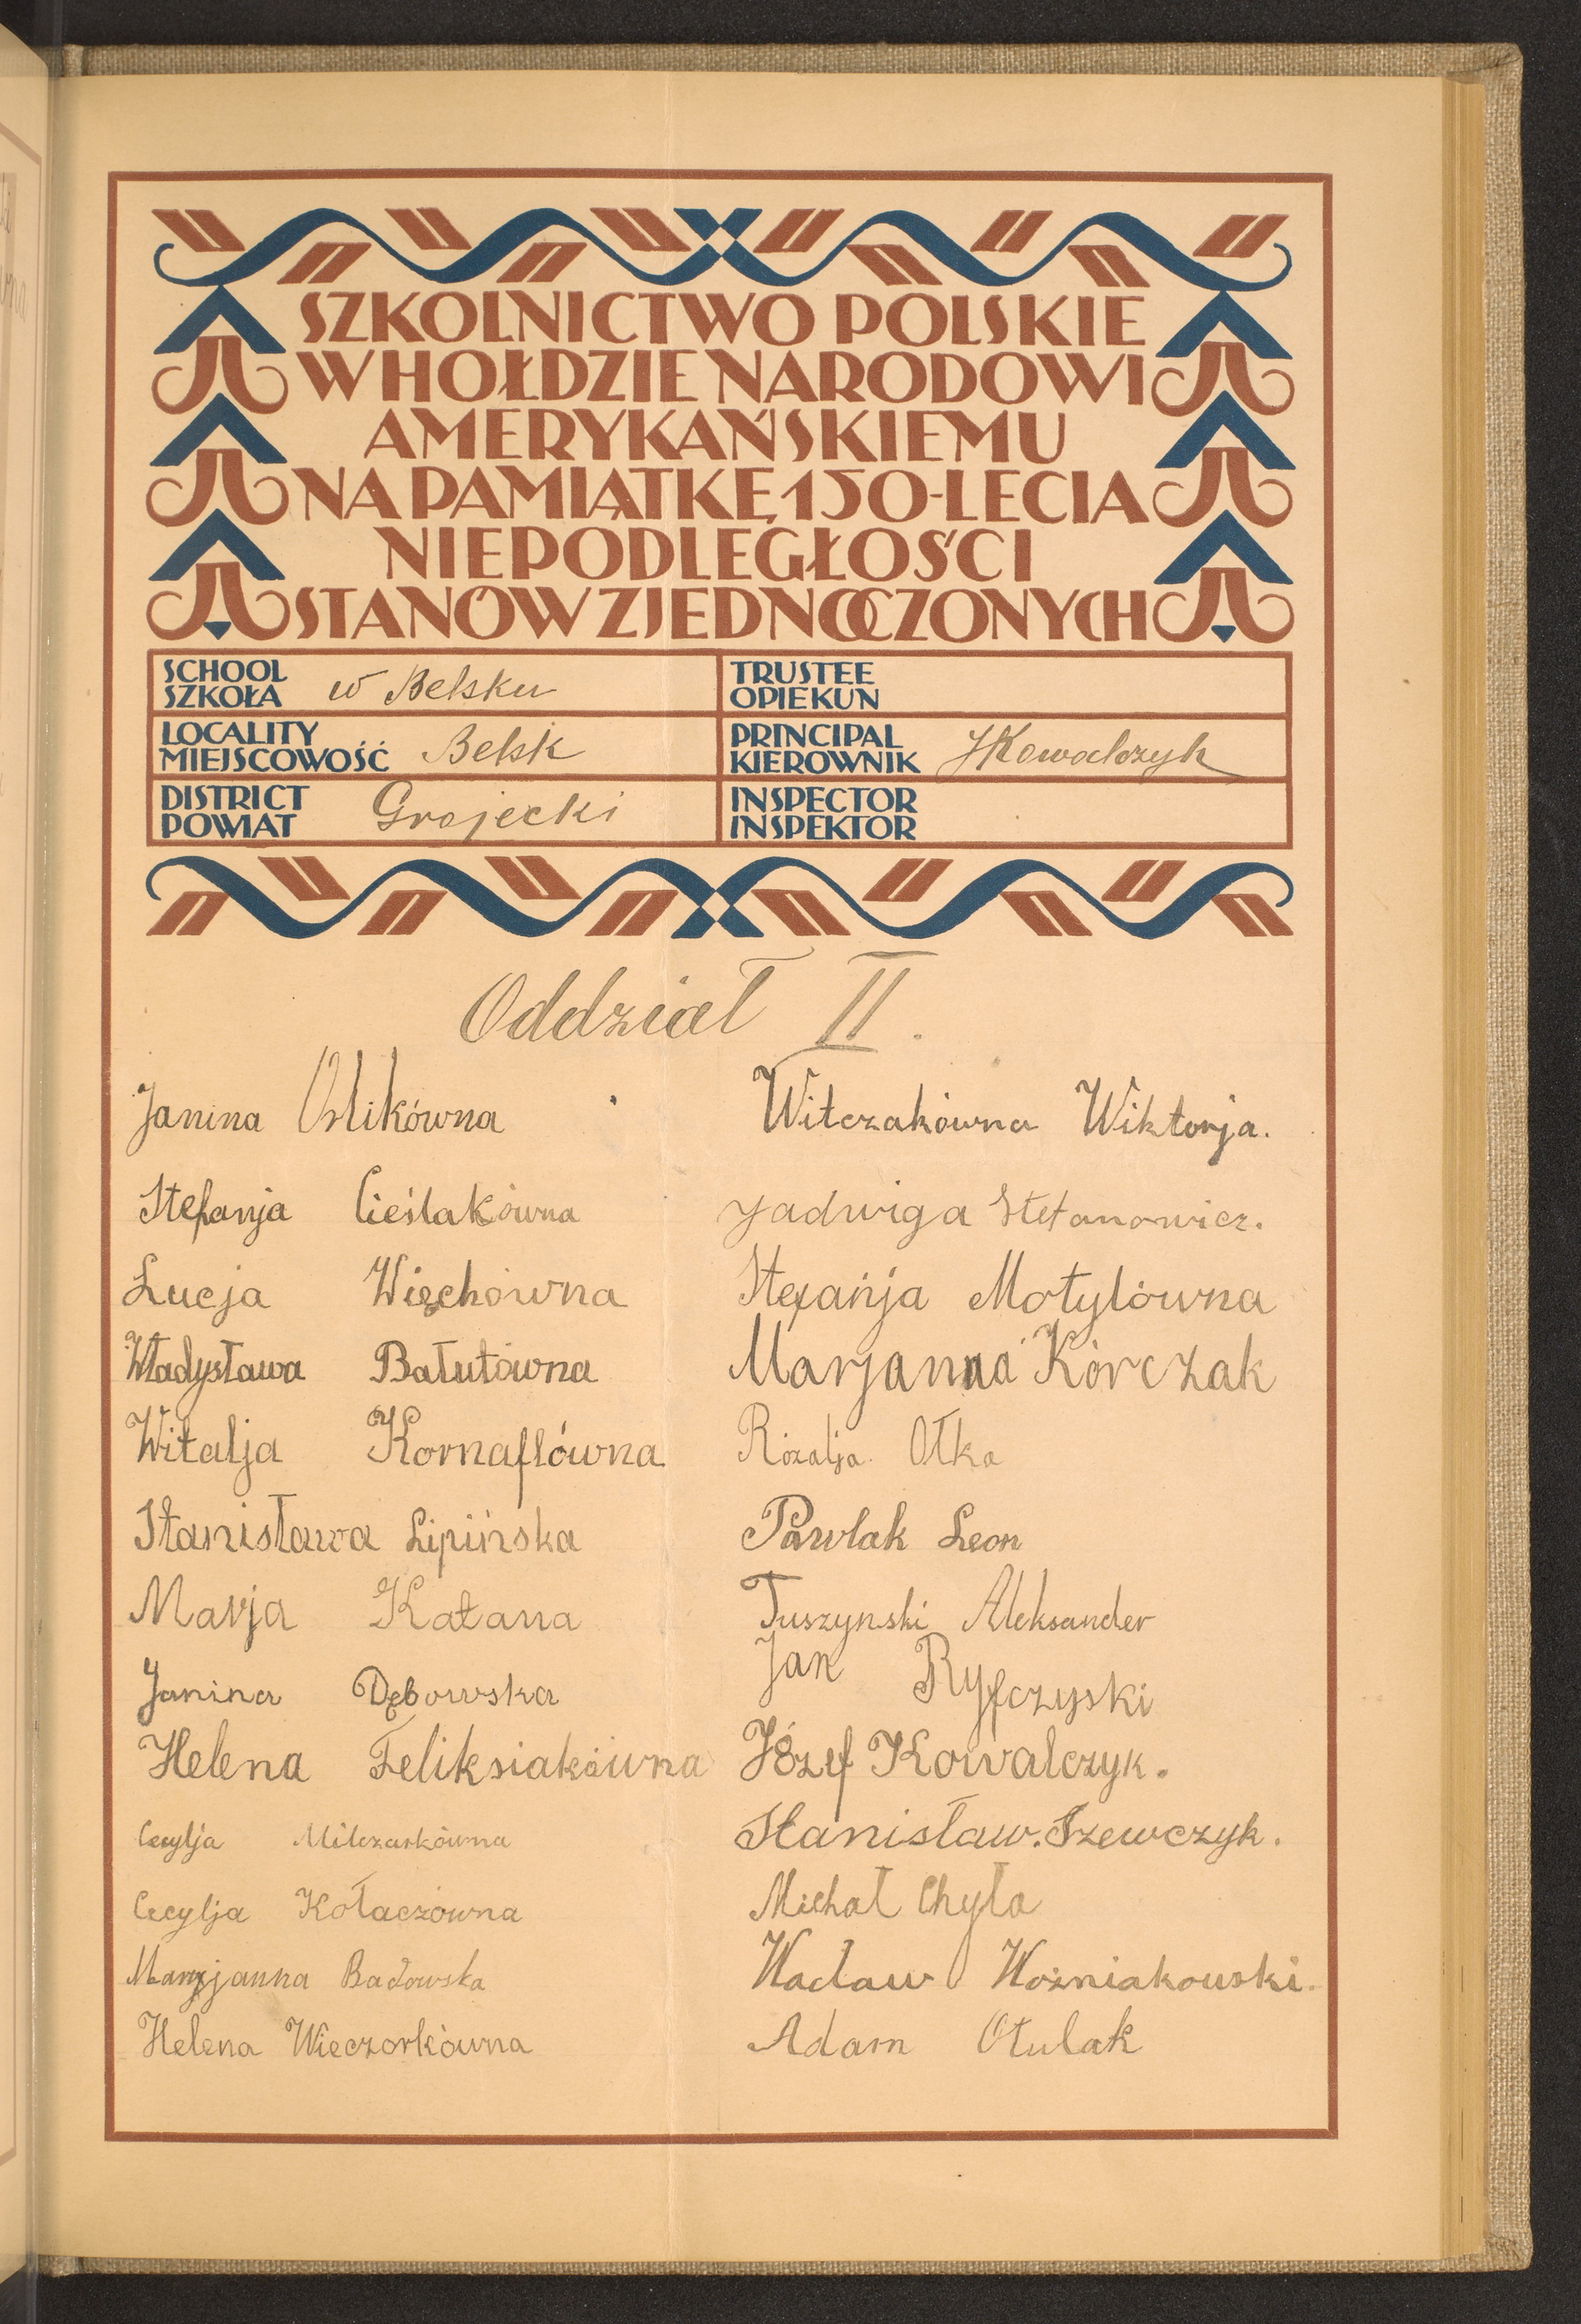 SZKOLNICTWO POLSKIE
W HOŁDZIE NARODOWI
AMERYKAŃSKIEMU
NA PAMIĄTKĘ 150-LECIA
NIEPODLEGŁOŚCI
STANÓW ZJEDNOCZONYCH
SCHOOL
SZKOŁA w Belsku
TRUSTEE
OPIEKUN
LOCALITY
MIEJSCOWOŚĆ Belsk
PRINCIPAL
KIEROWNIK JKowalczyk
DISTRICT
POWIAT Grojecki
INSPECTOR
INSPEKTOR
Oddział II.
Janina
Stefanja Cieślakówna
Łucja Więchówna
Władysława Bałutówna
Witalja Kornaflówna
Stanisława Lipińska
Marja Katana
Janina Dębowska
Helena Feliksiakówna
Cecylja Milczarkówna
Cecylja Kołaczówna
Marjanna Badowska
Helena Wieczorkówna
Witczakówna Wiktorja.
Jadwiga Stefanowicz.
Stefańja Motylówna
Marjanna Kórczak
Rozalja Ołka
Pawlak Leon
Tuszynski Aleksander
Jan Ryfczyski
Józef Kowalczyk.
Stanisław. Szewczyk.
Michał Chyła
Wacław Woźniakowski.
Adam Otulak